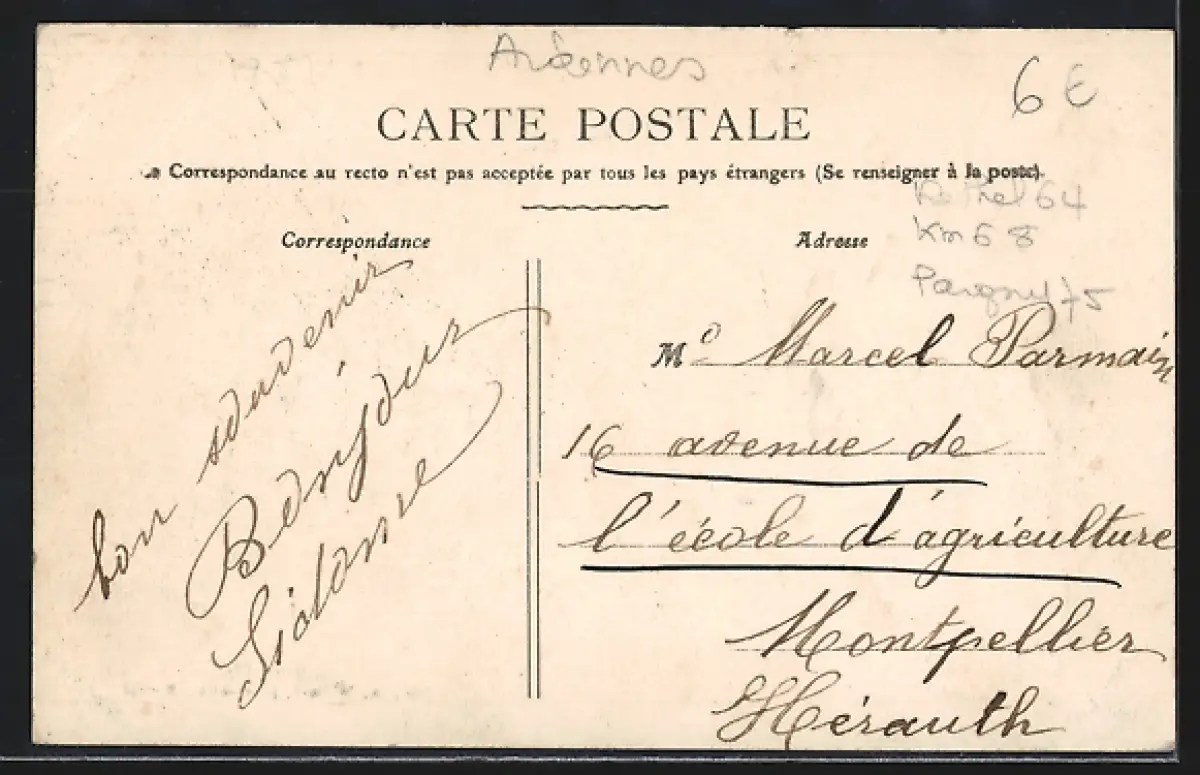 Ardennes
6 €
CARTE POSTALE
Correspondance au recto n'est pas acceptée par tous les pays étrangers (Se renseigner à la poste).
Rethel 64
Km 68
Correspondance
Adresse
bon souvenir
Bonjour
Sidonie
Me Marcel Parmain
16 avenue de
l'école d'agriculture
Montpellier
Hérauth